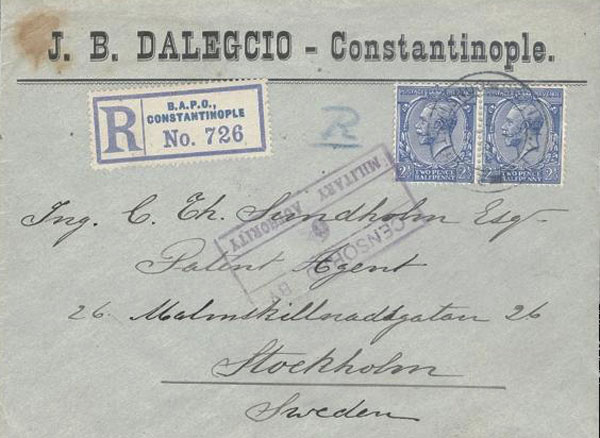 J. B. DALEGGIO – Constantinople.
R
B.A.P.O.,
CONSTANTINOPLE
No. 726
R
POSTAGE
2½ TWO PENCE HALFPENNY 2½
POSTAGE
2½ TWO PENCE HALFPENNY 2½
CENSORED BY
MILITARY AUTHORITY
Ing. C. Th. Sundholm Esq.
Patent Agent
26 Malmskillnadsgatan 26
Stockholm
Sweden